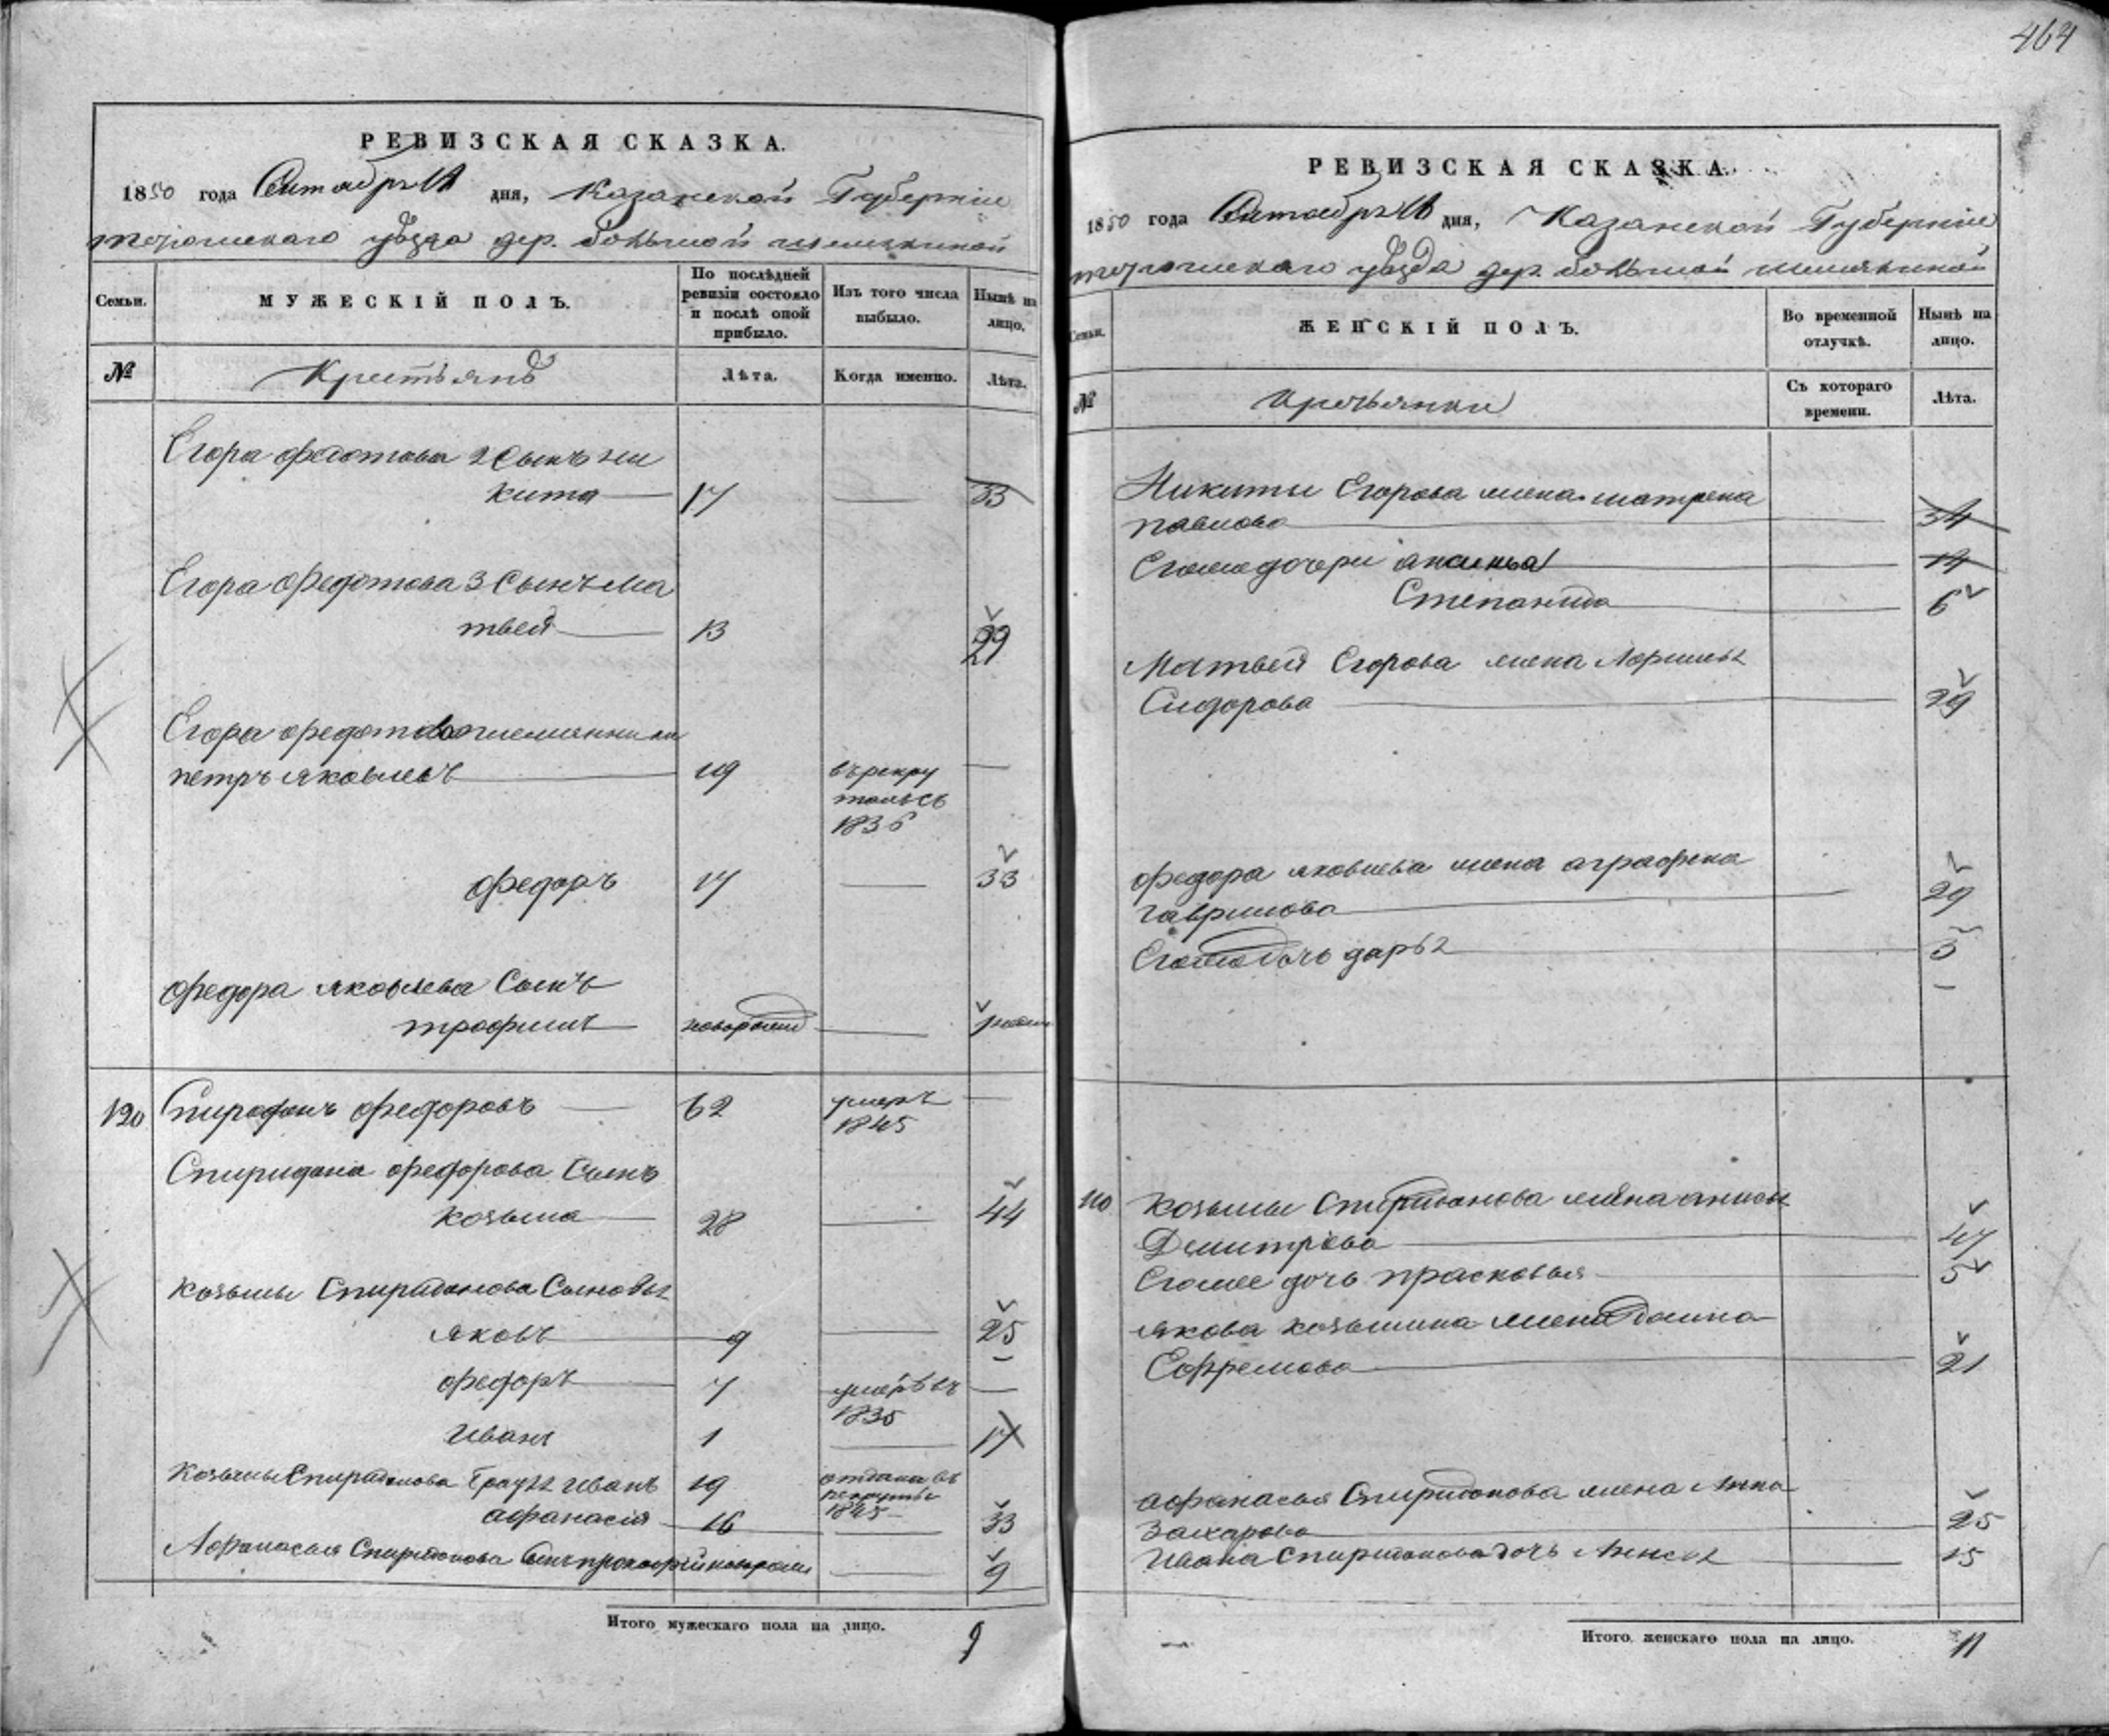 464
РЕВИЗСКАЯ СКАЗКА.
1850 года Сентября дня, Казанской Губернии
уезда дер. большой
Семьи.
МУЖЕСКІЙ ПОЛЪ.
По послѣдней ревизіи состояло и послѣ оной прибыло.
Изъ того числа выбыло.
Нынѣ на лицо.
№
Крестьянъ
Лѣта.
Когда именно.
Лѣта.
Егора федотова 2 Сынъ ни
кита 17 — 33
Егора Федотова 3 Сынъ Ма
твей 13 29
Егора федотова племянники
петръ яковлевъ 19 въ рекру —
1836
федоръ 17 — 33
федора яковлева Сынъ
трофимъ новорожд —
120 федоровъ — 62 умеръ —
1845
Спиридона федорова Сынъ
козьма 28 — 44
козьмы Спиридонова Сыновья
яковъ 9 — 25
федоръ 7 умеръ въ —
1835
Иванъ 1 — 17
Козьмы Спиридонова братья иванъ 19 отданъ въ
рекруты
1845
афанасія 16 — 33
Афонасья Спиридонова Сынъ — 9
Итого мужескаго пола на лицо. 9
РЕВИЗСКАЯ СКАЗКА.
1850 года Сентября дня, Казанской Губернии
уезда дер. большой
Семьи.
ЖЕНСКІЙ ПОЛЪ.
Во временной отлучкѣ.
Нынѣ на лицо.
№
Съ котораго времени.
Лѣта.
Никиты Егорова жена матрена
павлова 34
дочери аксинья 14
Степанида 6
Матвея Егорова жена
Сидорова 29
федора яковлева жена аграфена
гаврилова 29
дочь дарья 3
козьмы Спиридонова жена
Демитріева 47
дочь прасковья 5
якова козьмина жена
Ефремова 21
афанасья Спиридонова жена Анна
Захарова 25
Ивана Спиридонова дочь 15
Итого женскаго пола на лицо. 11